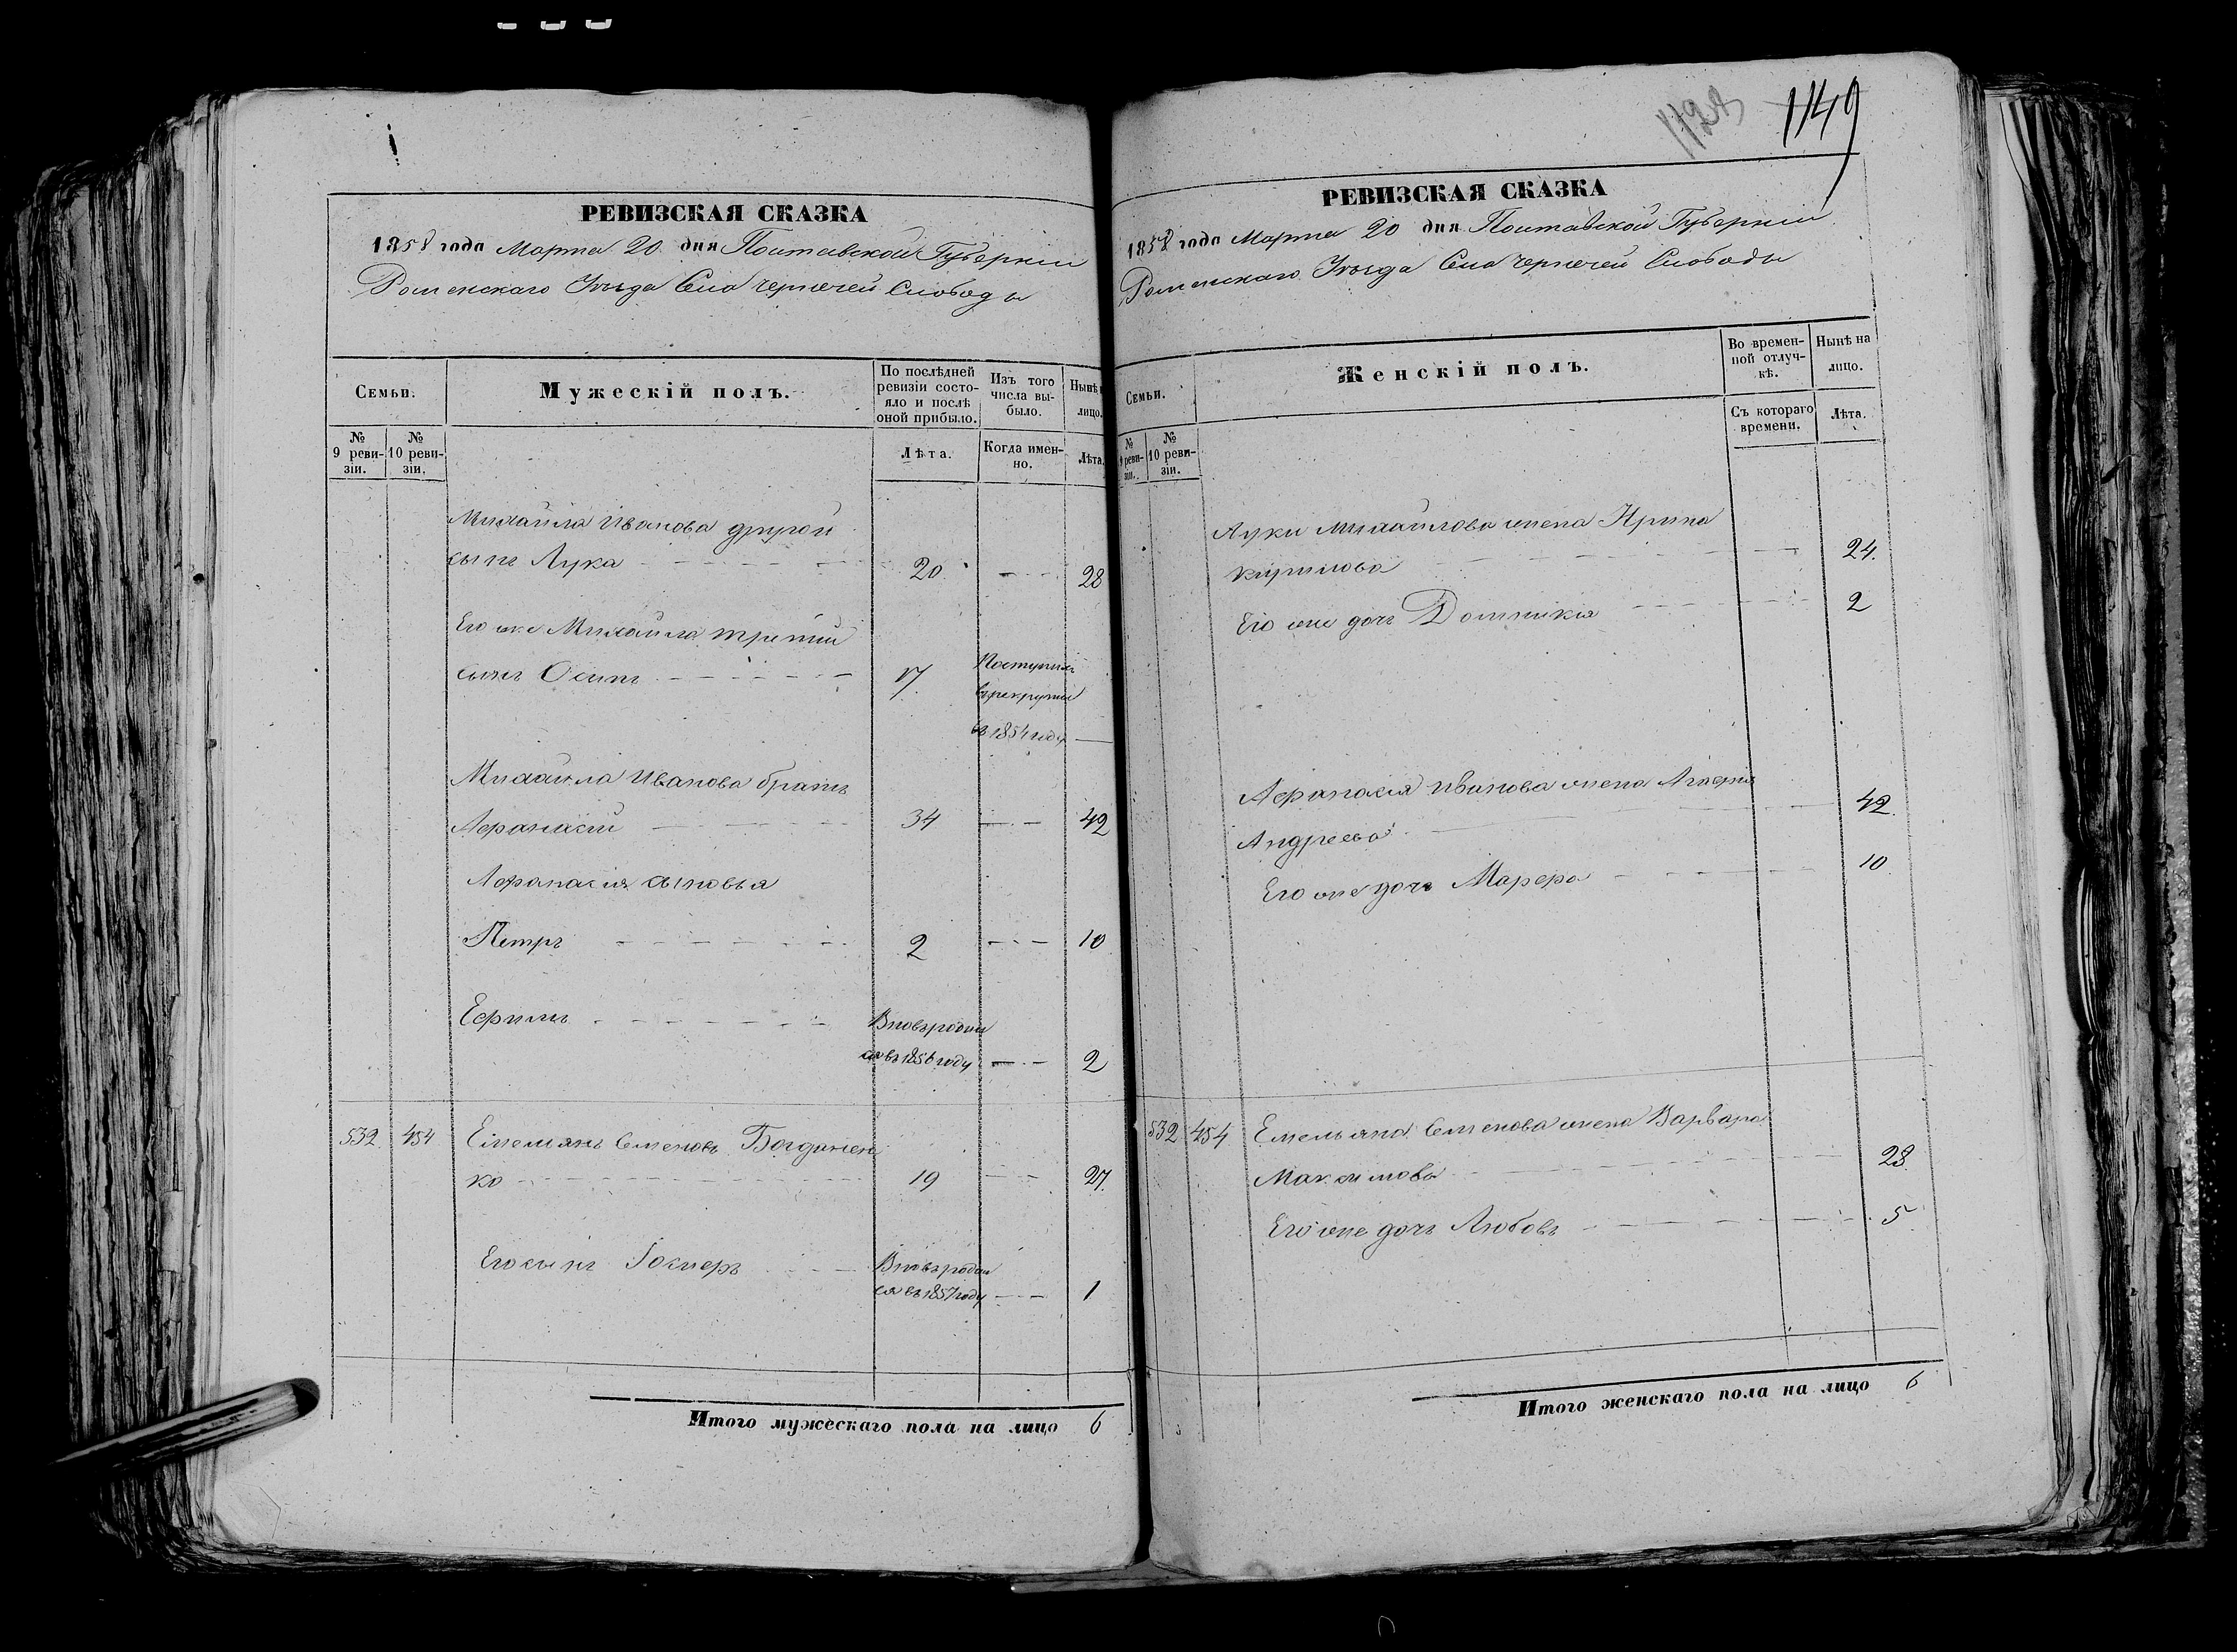 1149
РЕВИЗСКАЯ СКАЗКА
1858 года Марта 20 дня Полтавской Губерніи
Роменскаго Уѣзда Села Чернечей Слободы
Семьи.
Мужескій полъ.
По послѣдней ревизіи состояло и послѣ оной прибыло.
Изъ того числа выбыло.
Нынѣ
лицо.
№ 9 ревизіи.
№ 10 ревизіи.
Лѣта.
Когда именно.
Лѣта.
Михайла Иванова другой
сынъ Лука 20 28
Его же Михайла третій
сынъ Осипъ 17 Поступилъ
въ рекруты
въ 1854 году
Михайла Иванова братъ
Афанасій 34 42
Афанасия сыновья
Петръ 2 10
Ефимъ Вновь родил
ся въ 1856 году 2
532 454 Емельянъ Семеновъ Богданен
ко 19 27
Его сынъ Вновь родил
ся въ 1857 году 1
Итого мужескаго пола на лицо 6
РЕВИЗСКАЯ СКАЗКА
1858 года Марта 20 дня Полтавской Губерніи
Роменскаго Уѣзда Села Чернечей Слободы
Семьи.
Женскій полъ.
Во временной отлучкѣ.
Нынѣ на лицо.
№ 9 ревизіи.
№ 10 ревизіи.
Съ котораго времени.
Лѣта.
Луки Михайлова жена Ирина
Кирилова 24.
Его же дочь Домникия 2
Афанасия Иванова жена Агафия
Андреева 42.
Его же дочь Марфа 10
532 454 Емельяна Семенова жена Варвара
Максимова 28.
Его же дочь Любовь 5
Итого женскаго пола на лицо 6